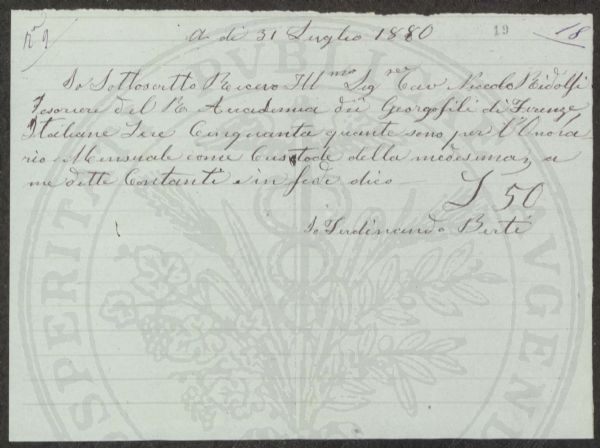 Nº 9
A dì 31 Luglio 1880
19
18
Io Sottoscritto Ricevo Illmo Signer Cav Niccolo Ridolfi
Tesoriere del R Accademia dei Georgofili di Firenze
Italiane Lire Cinquanta quante sono per l'Onora
rio Mensuale come Custode della medesima, a
me dette Contanti e in fede dico
L 50
Io Ferdinando Berti
PVBLICAE
PROSPERITATI AVGENDAE